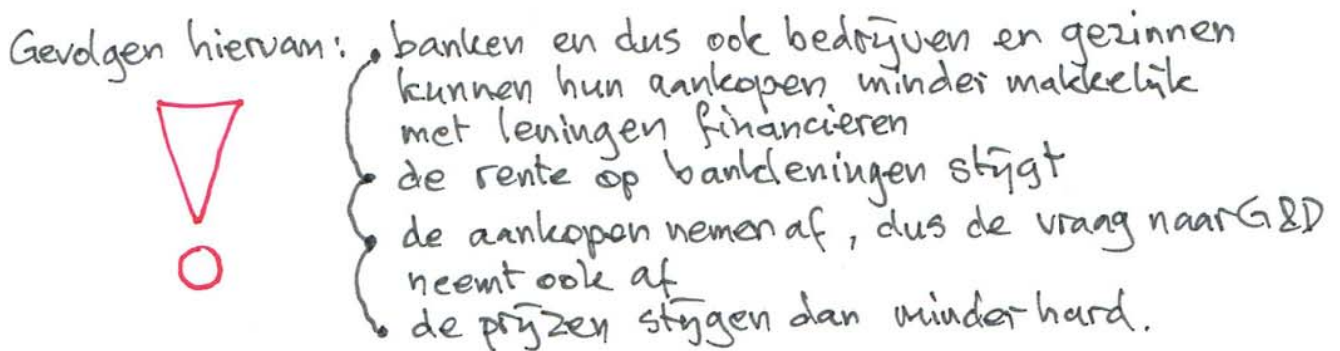 Gevolgen hiervan: • banken en dus ook bedrijven en gezinnen
kunnen hun aankopen minder makkelijk
met leningen financieren
• de rente op bankleningen stijgt
• de aankopen nemen af, dus de vraag naar G&D
neemt ook af
• de prijzen stijgen dan minder hard.